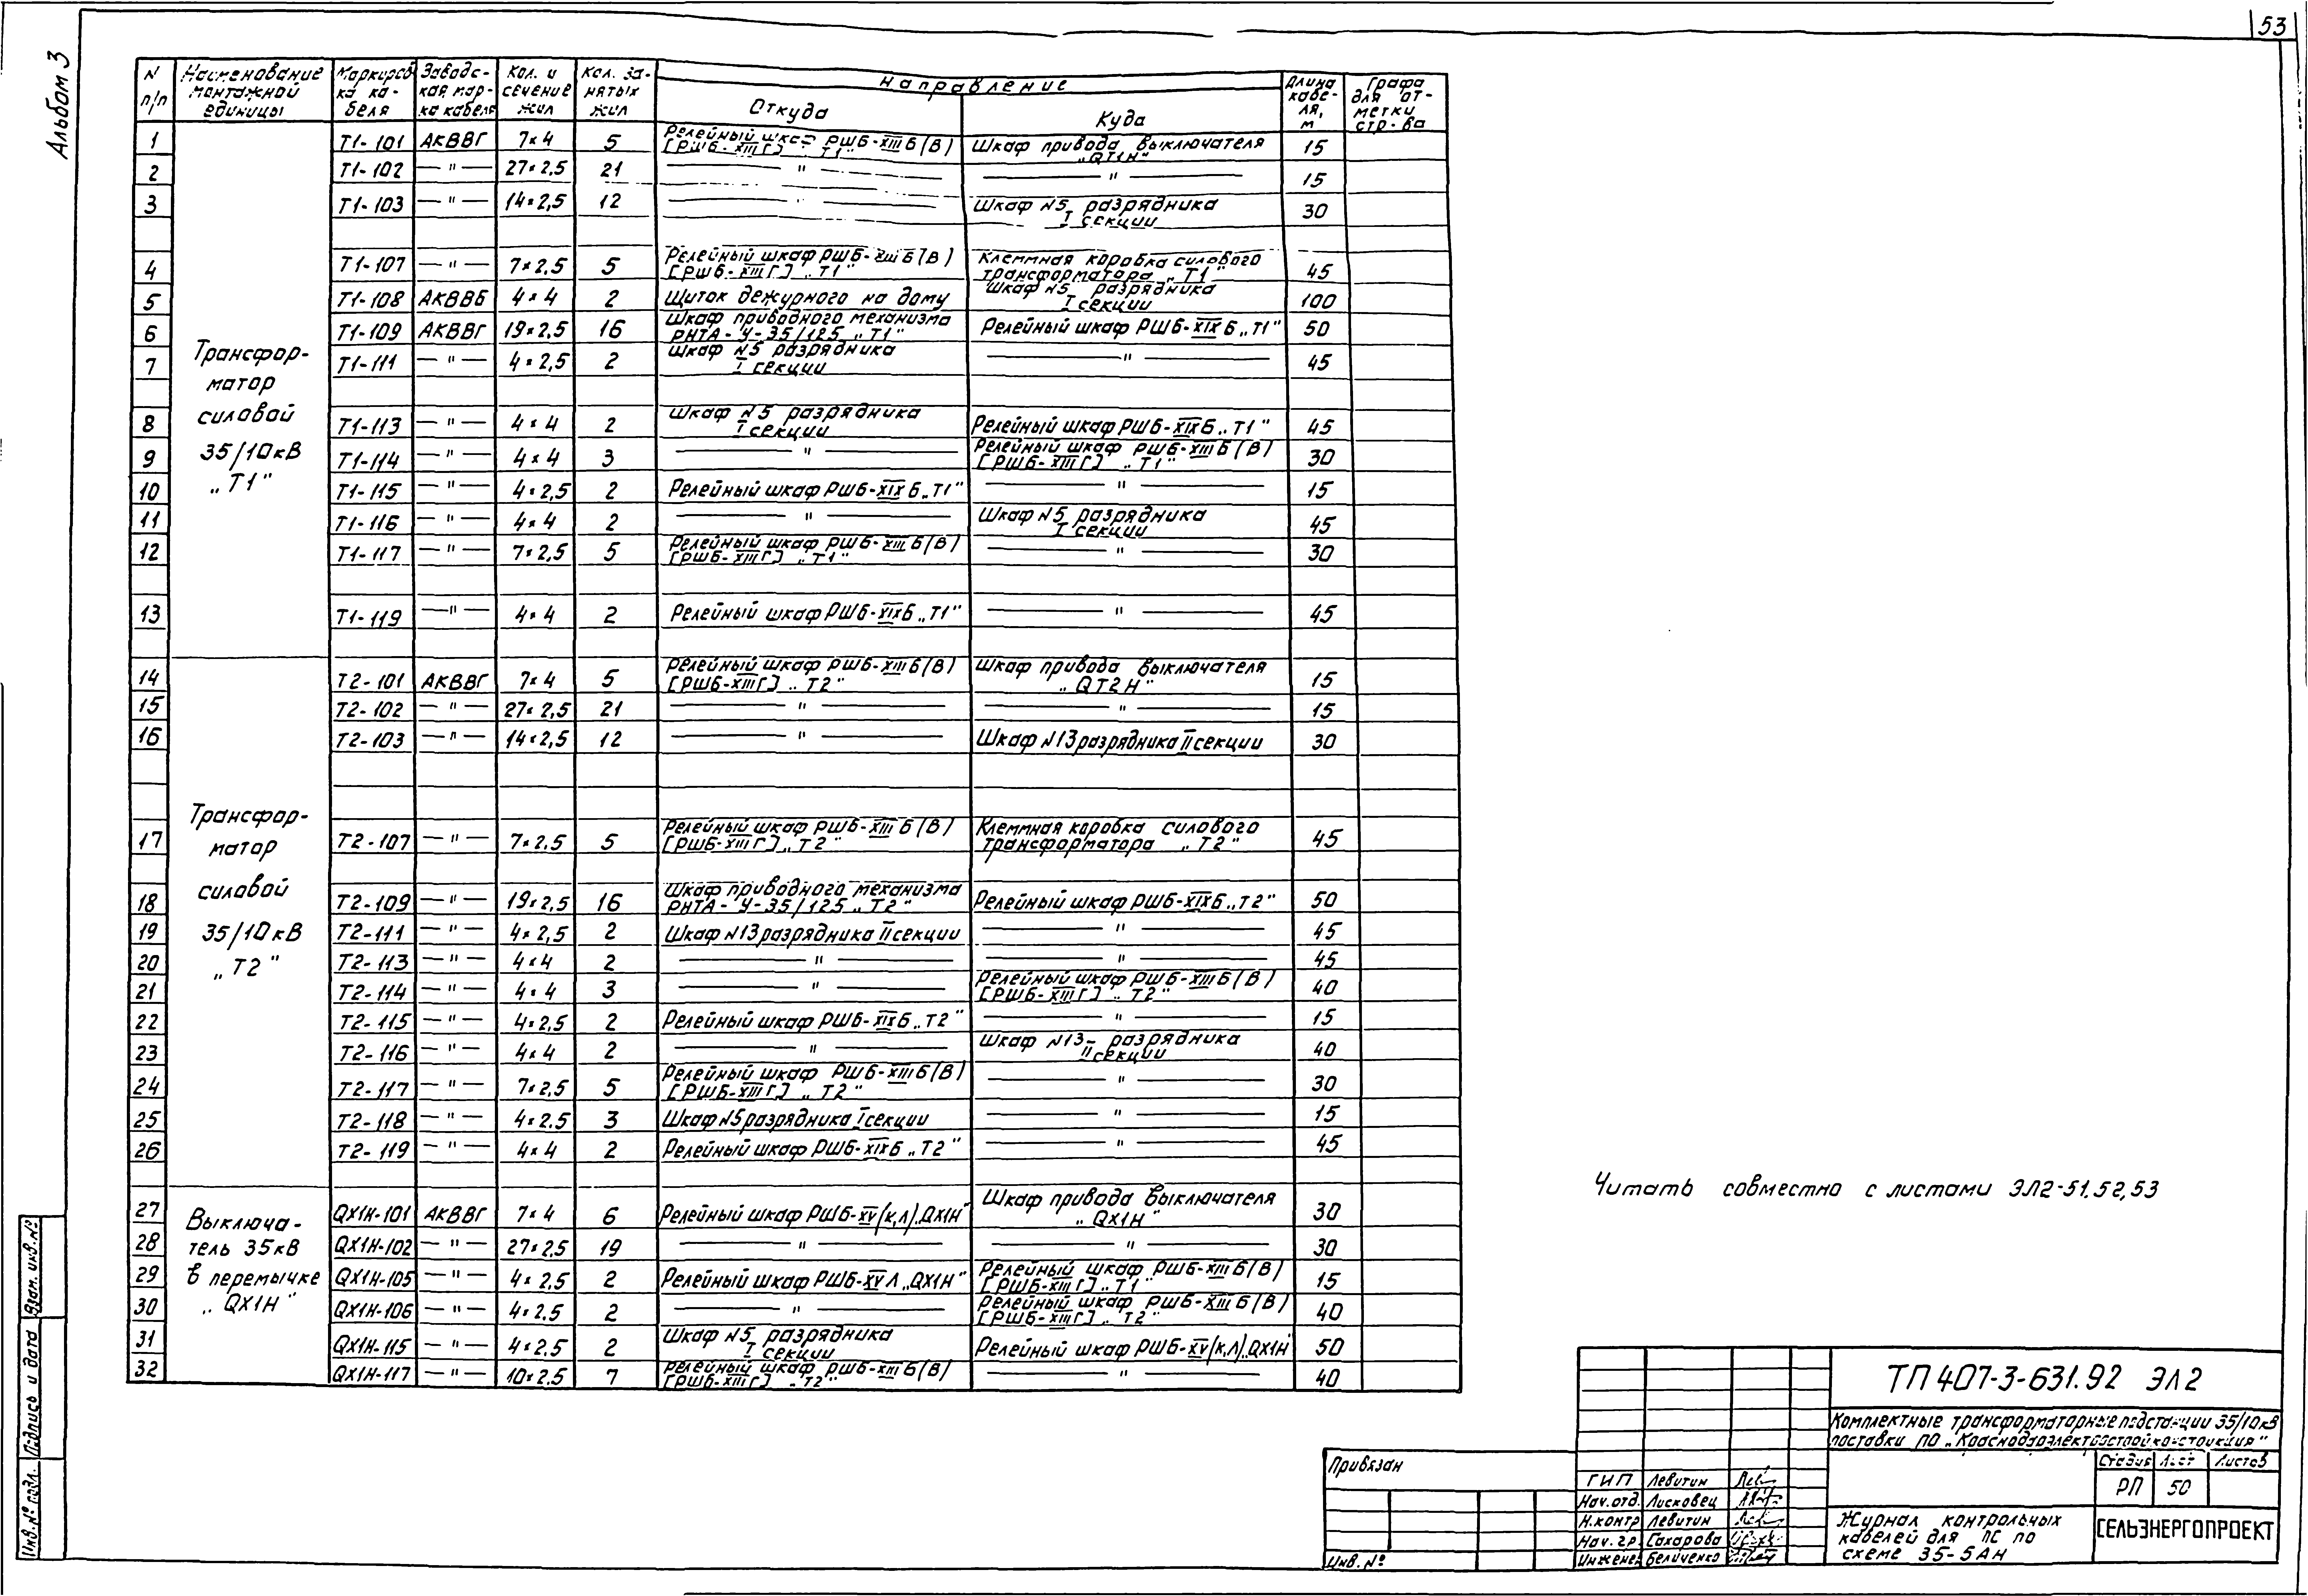 53
Альбом 3
N п/п | Наименование монтажной единицы | Маркировка кабеля | Заводская марка кабеля | Кол. и сечение жил | Кол. занятых жил | Направление | Длина кабеля, м | Графа для отметки стр-ва
Откуда | Куда
Трансформатор силовой 35/10кВ „Т1"
1 | Т1-101 | АКВВГ | 7×4 | 5 | Релейный шкаф РШБ-XIII Б(В) [РШБ-XIII Г] „Т1" | Шкаф привода выключателя „QT1H" | 15
2 | Т1-102 | —"— | 27×2,5 | 21 | —"— | —"— | 15
3 | Т1-103 | —"— | 14×2,5 | 12 | —"— | Шкаф N5 разрядника I секции | 30
4 | Т1-107 | —"— | 7×2,5 | 5 | Релейный шкаф РШБ-XIII Б(В) [РШБ-XIII Г] „Т1" | Клеммная коробка силового трансформатора „Т1" | 45
5 | Т1-108 | АКВВБ | 4×4 | 2 | Щиток дежурного на дому | Шкаф N5 разрядника I секции | 100
6 | Т1-109 | АКВВГ | 19×2,5 | 16 | Шкаф приводного механизма РНТА-У-35/125 „Т1" | Релейный шкаф РШБ-XIX Б „Т1" | 50
7 | Т1-111 | —"— | 4×2,5 | 2 | Шкаф N5 разрядника I секции | —"— | 45
8 | Т1-113 | —"— | 4×4 | 2 | Шкаф N5 разрядника I секции | Релейный шкаф РШБ-XIX Б „Т1" | 45
9 | Т1-114 | —"— | 4×4 | 3 | —"— | Релейный шкаф РШБ-XIII Б(В) [РШБ-XIII Г] „Т1" | 30
10 | Т1-115 | —"— | 4×2,5 | 2 | Релейный шкаф РШБ-XIX Б „Т1" | —"— | 15
11 | Т1-116 | —"— | 4×4 | 2 | —"— | Шкаф N5 разрядника I секции | 45
12 | Т1-117 | —"— | 7×2,5 | 5 | Релейный шкаф РШБ-XIII Б(В) [РШБ-XIII Г] „Т1" | —"— | 30
13 | Т1-119 | —"— | 4×4 | 2 | Релейный шкаф РШБ-XIX Б „Т1" | —"— | 45
Трансформатор силовой 35/10кВ „Т2"
14 | Т2-101 | АКВВГ | 7×4 | 5 | Релейный шкаф РШБ-XIII Б(В) [РШБ-XIII Г] „Т2" | Шкаф привода выключателя „QT2H" | 15
15 | Т2-102 | —"— | 27×2,5 | 21 | —"— | —"— | 15
16 | Т2-103 | —"— | 14×2,5 | 12 | —"— | Шкаф N13 разрядника II секции | 30
17 | Т2-107 | —"— | 7×2,5 | 5 | Релейный шкаф РШБ-XIII Б(В) [РШБ-XIII Г] „Т2" | Клеммная коробка силового трансформатора „Т2" | 45
18 | Т2-109 | —"— | 19×2,5 | 16 | Шкаф приводного механизма РНТА-У-35/125 „Т2" | Релейный шкаф РШБ-XIX Б „Т2" | 50
19 | Т2-111 | —"— | 4×2,5 | 2 | Шкаф N13 разрядника II секции | —"— | 45
20 | Т2-113 | —"— | 4×4 | 2 | —"— | —"— | 45
21 | Т2-114 | —"— | 4×4 | 3 | —"— | Релейный шкаф РШБ-XIII Б(В) [РШБ-XIII Г] „Т2" | 40
22 | Т2-115 | —"— | 4×2,5 | 2 | Релейный шкаф РШБ-XIX Б „Т2" | —"— | 15
23 | Т2-116 | —"— | 4×4 | 2 | —"— | Шкаф N13- разрядника II секции | 40
24 | Т2-117 | —"— | 7×2,5 | 5 | Релейный шкаф РШБ-XIII Б(В) [РШБ-XIII Г] „Т2" | —"— | 30
25 | Т2-118 | —"— | 4×2.5 | 3 | Шкаф N5 разрядника I секции | —"— | 15
26 | Т2-119 | —"— | 4×4 | 2 | Релейный шкаф РШБ-XIX Б „Т2" | —"— | 45
Выключатель 35кВ в перемычке „QX1H"
27 | QX1H-101 | АКВВГ | 7×4 | 6 | Релейный шкаф РШБ-XV(К,Л) „QX1H" | Шкаф привода выключателя „QX1H" | 30
28 | QX1H-102 | —"— | 27×2,5 | 19 | —"— | —"— | 30
29 | QX1H-105 | —"— | 4×2,5 | 2 | Релейный шкаф РШБ-XV Л „QX1H" | Релейный шкаф РШБ-XIII Б(В) [РШБ-XIII Г] „Т1" | 15
30 | QX1H-106 | —"— | 4×2.5 | 2 | —"— | Релейный шкаф РШБ-XIII Б(В) [РШБ-XIII Г] „Т2" | 40
31 | QX1H-115 | —"— | 4×2,5 | 2 | Шкаф N5 разрядника I секции | Релейный шкаф РШБ-XV(К,Л) „QX1H" | 50
32 | QX1H-117 | —"— | 10×2.5 | 7 | Релейный шкаф РШБ-XIII Б(В) [РШБ-XIII Г] „Т2" | —"— | 40
Читать совместно с листами ЭЛ2-51,52,53
Взам. инв. №
Подпись и дата
Инв. № подл.
Привязан
Инв. №
ГИП Левитин
Нач. отд. Лисковец
Н.контр Левитин
Нач. гр. Сахарова
Инженер Беличенко
ТП 407-3-631.92 ЭЛ2
Комплектные трансформаторные подстанции 35/10кВ
поставки ПО „Краснодарэлектростройконструкция"
Стадия Лист Листов
РП 50
Журнал контрольных
кабелей для ПС по
схеме 35-5АН
СЕЛЬЭНЕРГОПРОЕКТ